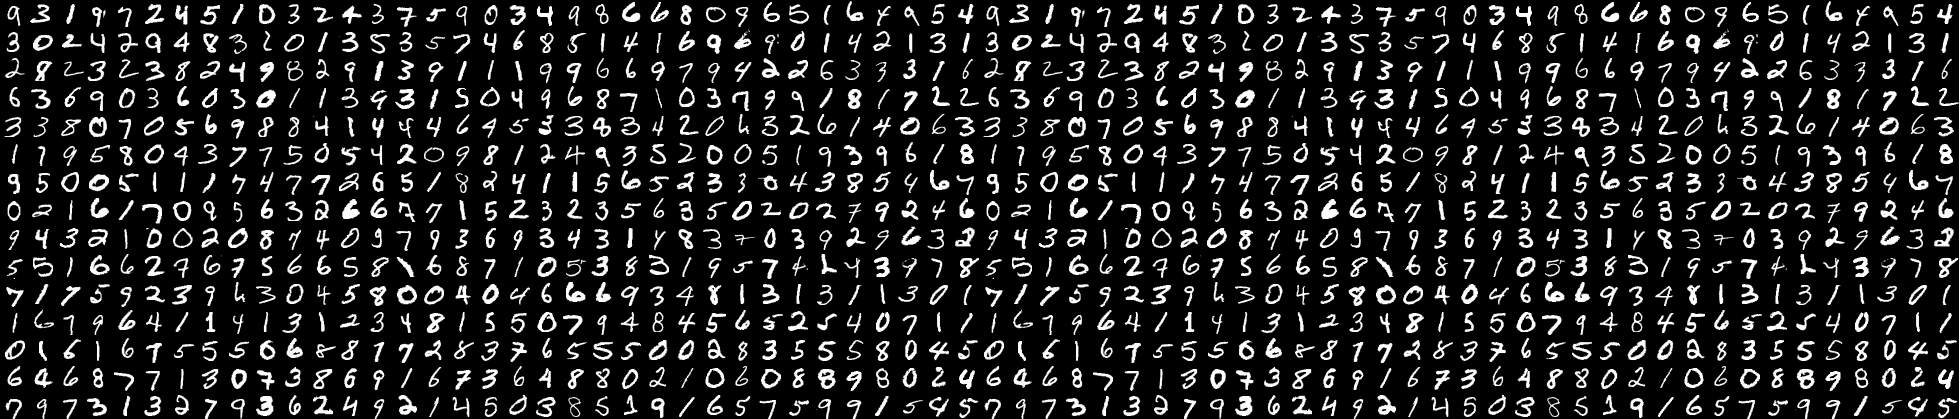 9 3 1 9 7 2 4 5 1 0 3 2 4 3 7 5 9 0 3 4 9 8 6 6 8 0 9 6 5 1 6 4 9 5 4 9 3 1 9 7 2 4 5 1 0 3 2 4 3 7 5 9 0 3 4 9 8 6 6 8 0 9 6 5 1 6 4 9 5 4
3 0 2 4 2 9 4 8 3 2 0 1 3 5 3 5 7 4 6 8 5 1 4 1 6 9 6 9 0 1 4 2 1 3 1 3 0 2 4 2 9 4 8 3 2 0 1 3 5 3 5 7 4 6 8 5 1 4 1 6 9 6 9 0 1 4 2 1 3 1
2 8 2 3 2 3 8 2 4 9 8 2 9 1 3 9 1 1 1 9 9 6 6 9 7 9 4 2 2 6 3 3 3 1 6 2 8 2 3 2 3 8 2 4 9 8 2 9 1 3 9 1 1 1 9 9 6 6 9 7 9 4 2 2 6 3 3 3 1 6
6 3 6 9 0 3 6 0 3 0 1 1 3 9 3 1 5 0 4 9 6 8 7 1 0 3 7 9 9 1 8 1 7 2 2 6 3 6 9 0 3 6 0 3 0 1 1 3 9 3 1 5 0 4 9 6 8 7 1 0 3 7 9 9 1 8 1 7 2 2
3 3 8 0 7 0 5 6 9 8 8 4 1 4 4 4 6 4 5 3 3 8 3 4 2 0 6 3 2 6 1 4 0 6 3 3 3 8 0 7 0 5 6 9 8 8 4 1 4 4 4 6 4 5 3 3 8 3 4 2 0 6 3 2 6 1 4 0 6 3
1 7 9 5 8 0 4 3 7 7 5 0 5 4 2 0 9 8 1 2 4 9 3 5 2 0 0 5 1 9 3 9 6 1 8 1 7 9 5 8 0 4 3 7 7 5 0 5 4 2 0 9 8 1 2 4 9 3 5 2 0 0 5 1 9 3 9 6 1 8
9 5 0 0 5 1 1 1 7 4 7 7 2 6 5 1 8 2 4 1 1 5 6 5 2 3 3 0 4 3 8 5 4 6 7 9 5 0 0 5 1 1 1 7 4 7 7 2 6 5 1 8 2 4 1 1 5 6 5 2 3 3 0 4 3 8 5 4 6 7
0 2 1 6 1 7 0 9 5 6 3 2 6 6 7 7 1 5 2 3 2 3 5 6 3 5 0 2 0 2 7 9 2 4 6 0 2 1 6 1 7 0 9 5 6 3 2 6 6 7 7 1 5 2 3 2 3 5 6 3 5 0 2 0 2 7 9 2 4 6
9 4 3 2 1 0 0 2 0 8 7 4 0 9 7 9 3 6 9 3 4 3 1 4 8 3 7 0 3 9 2 9 6 3 2 9 4 3 2 1 0 0 2 0 8 7 4 0 9 7 9 3 6 9 3 4 3 1 4 8 3 7 0 3 9 2 9 6 3 2
5 5 1 6 6 2 7 6 7 5 6 6 5 8 1 6 8 7 1 0 5 3 8 3 1 9 5 7 4 2 4 3 9 7 8 5 5 1 6 6 2 7 6 7 5 6 6 5 8 1 6 8 7 1 0 5 3 8 3 1 9 5 7 4 2 4 3 9 7 8
7 1 7 5 9 2 3 9 6 3 0 4 5 8 0 0 4 0 4 6 6 6 9 3 4 8 1 3 1 3 1 1 3 0 1 7 1 7 5 9 2 3 9 6 3 0 4 5 8 0 0 4 0 4 6 6 6 9 3 4 8 1 3 1 3 1 1 3 0 1
1 6 7 9 6 4 1 1 4 1 3 1 2 3 4 8 1 5 5 0 7 9 4 8 4 5 6 5 2 5 4 0 7 1 1 1 6 7 9 6 4 1 1 4 1 3 1 2 3 4 8 1 5 5 0 7 9 4 8 4 5 6 5 2 5 4 0 7 1 1
0 1 6 1 6 7 5 5 5 0 6 8 8 7 7 2 8 3 7 6 5 5 5 0 0 2 8 3 5 5 5 8 0 4 5 0 1 6 1 6 7 5 5 5 0 6 8 8 7 7 2 8 3 7 6 5 5 5 0 0 2 8 3 5 5 5 8 0 4 5
6 4 6 8 7 7 1 3 0 7 3 8 6 9 1 6 7 3 6 4 8 8 0 2 1 0 6 0 8 8 9 8 0 2 4 6 4 6 8 7 7 1 3 0 7 3 8 6 9 1 6 7 3 6 4 8 8 0 2 1 0 6 0 8 8 9 8 0 2 4
7 9 7 3 1 3 2 7 9 3 6 2 4 9 2 1 4 5 0 3 8 5 1 9 1 6 5 7 5 9 9 1 5 4 5 7 9 7 3 1 3 2 7 9 3 6 2 4 9 2 1 4 5 0 3 8 5 1 9 1 6 5 7 5 9 9 1 5 4 5